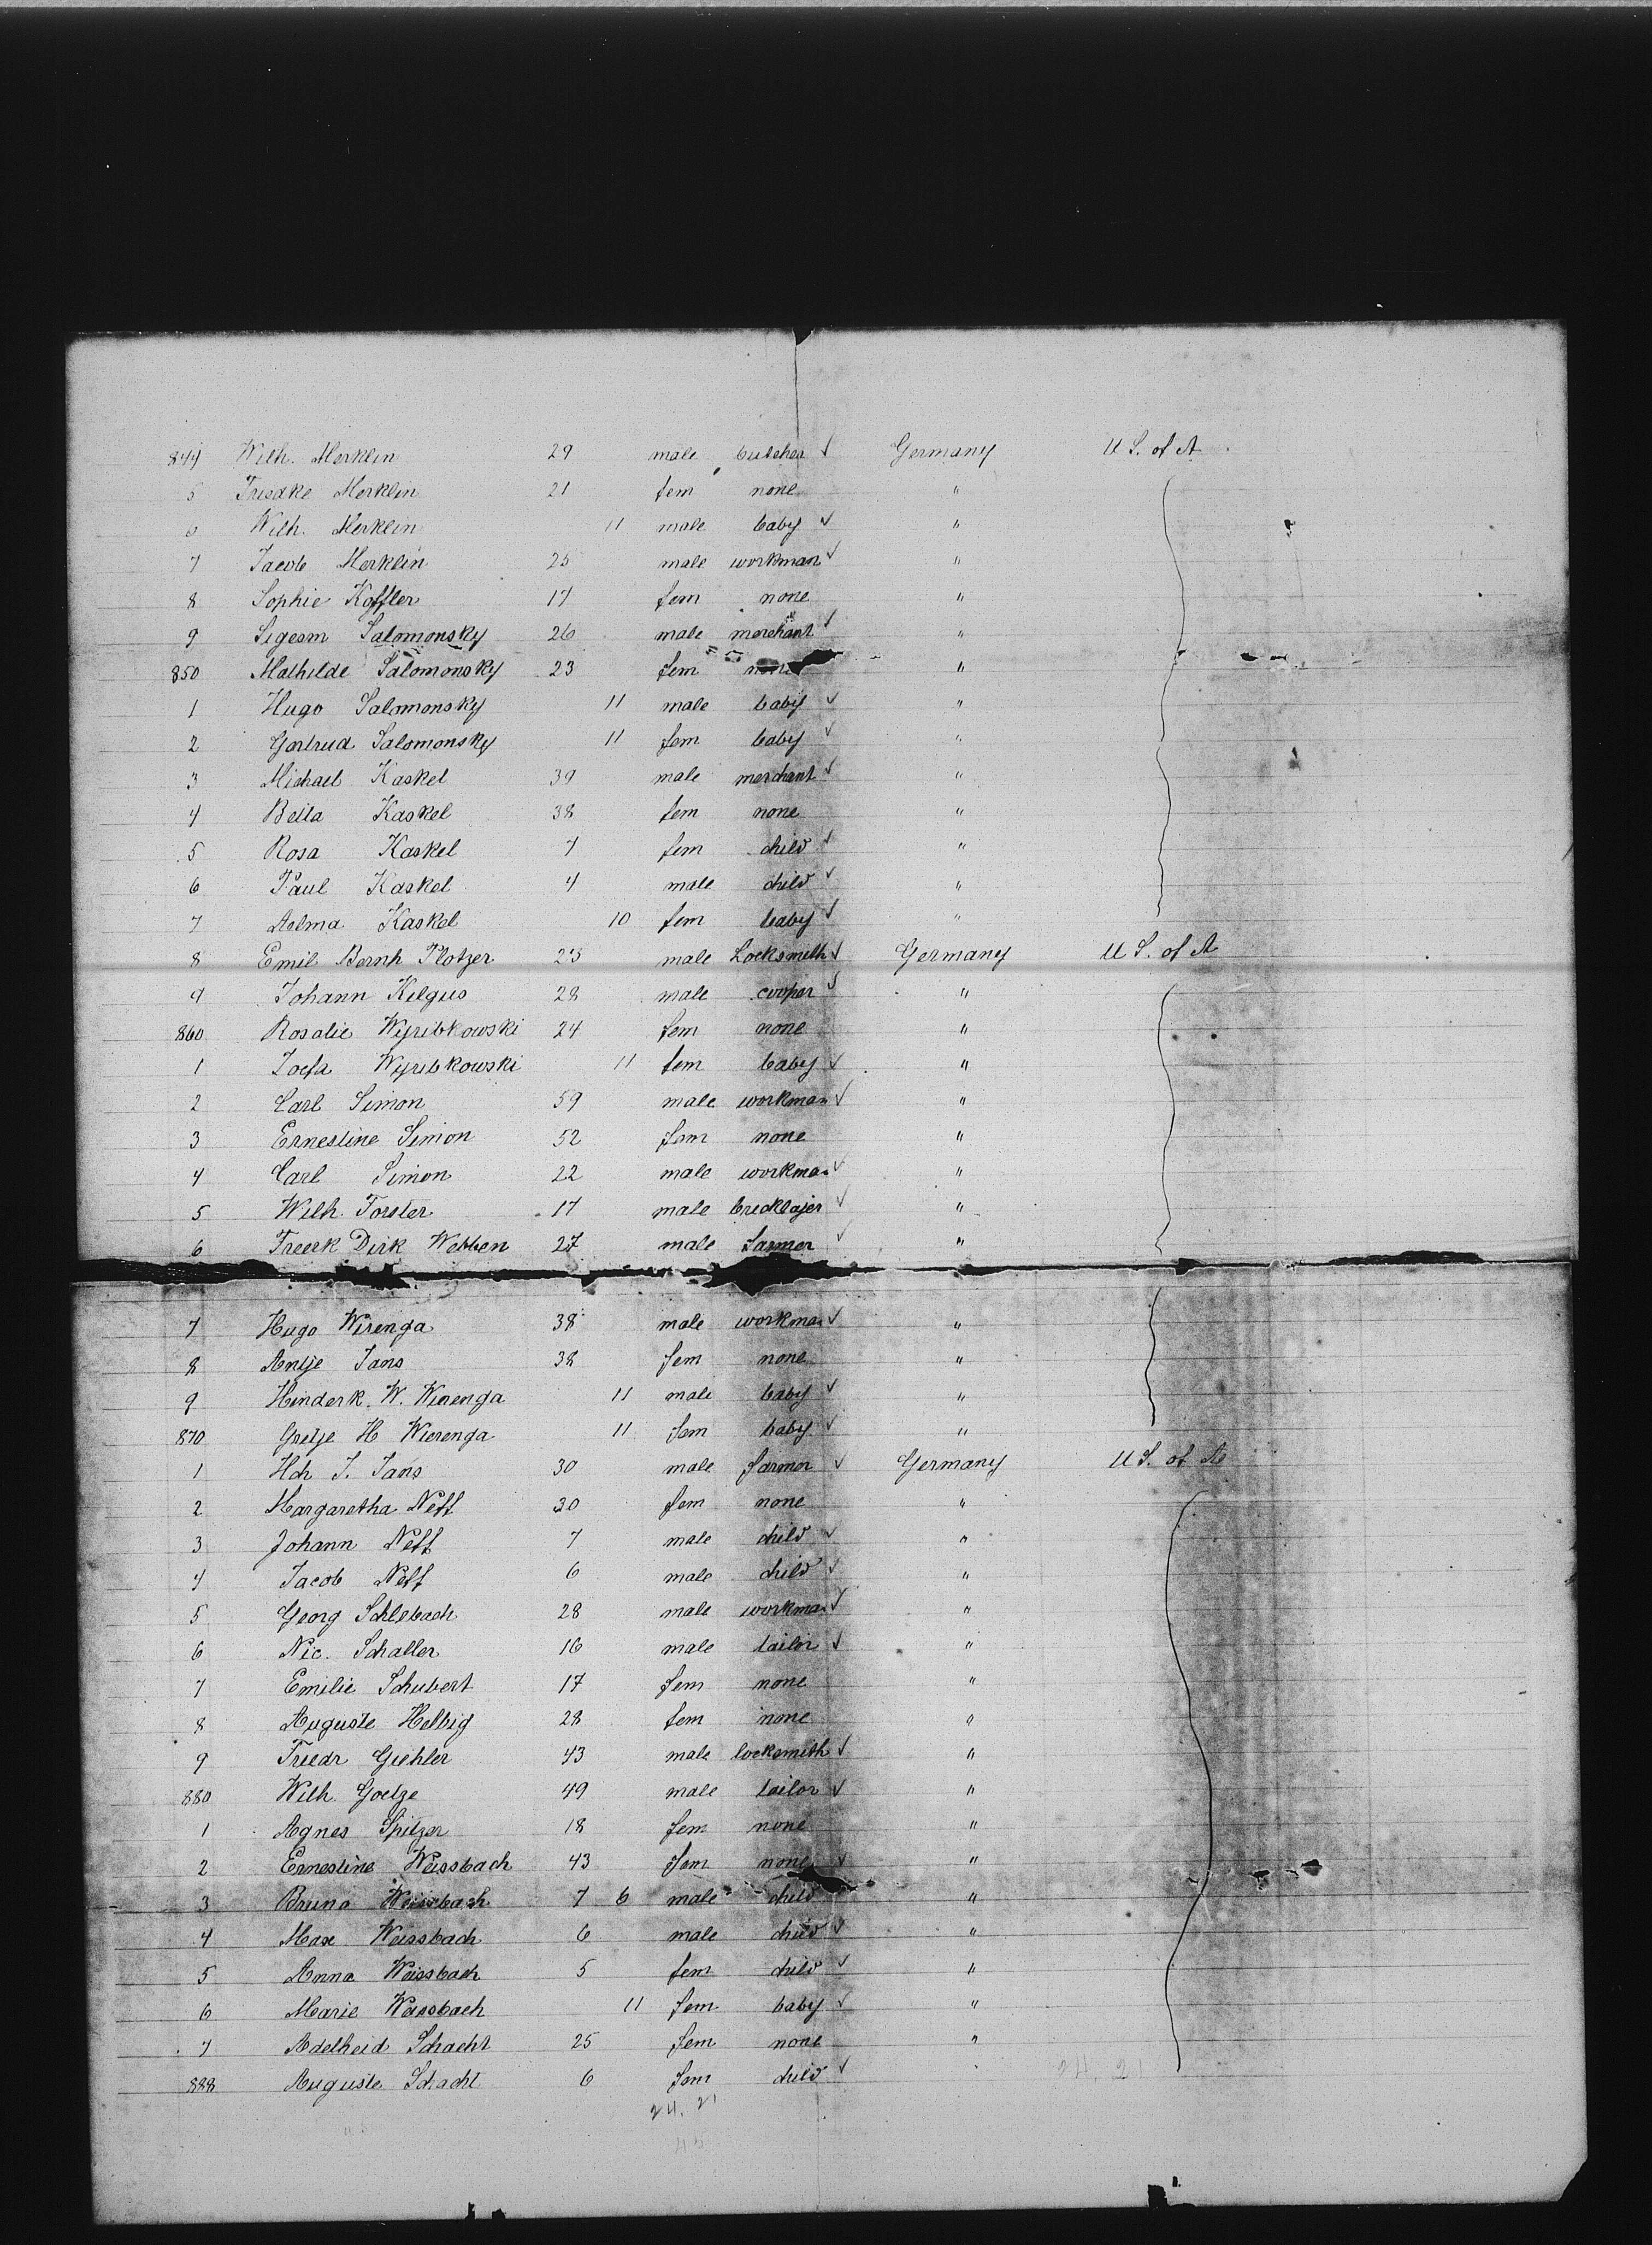 844 Wilh. Merklin 29 male butcher ✓ Germany U S. of A.
5 Friedke Merklin 21 fem none "
6 Wilh. Merklin 11 male baby ✓ "
7 Jacob Merklin 25 male workman ✓ "
8 Sophie Koffler 17 fem none "
9 Sigesm Salomonsky 26 male merchant ✓ "
850 Mathilde Salomonsky 23 fem none "
1 Hugo Salomonsky 11 male baby ✓ "
2 Gertrud Salomonsky 11 fem baby ✓ "
3 Michael Kaskel 39 male merchant ✓ "
4 Bella Kaskel 38 fem none "
5 Rosa Kaskel 7 fem child ✓ "
6 Paul Kaskel 4 male child ✓ "
7 Kaskel 10 fem baby ✓ "
8 Emil Bernh Plotzer 23 male Locksmith ✓ Germany U S. of A
9 Johann Kilgus 28 male cooper ✓ "
860 Rosalie Wyribkowski 24 fem none "
1 Wyribkowski 11 fem baby ✓ "
2 Carl Simon 59 male workman ✓ "
3 Ernestine Simon 52 fem none "
4 Carl Simon 22 male workman ✓ "
5 Wilh. Forster 17 male bricklajer ✓ "
6 Freerk Dirk Webben 27 male farmer ✓ "
7 Hugo Wirenga 38 male workman ✓ "
8 Antje Jans 38 fem none "
9 Hinderk. W. Wierenga 11 male baby ✓ "
870 Gretje H Wierenga 11 fem baby ✓ "
1 Hch J. Jans 30 male farmer ✓ Germany U S. of A
2 Margaretha Neff 30 fem none "
3 Johann Neff 7 male child ✓ "
4 Jacob Neff 6 male child ✓ "
5 Georg Schlebach 28 male workman ✓ "
6 Nic. Schaller 16 male tailor ✓ "
7 Emilie Schubert 17 fem none "
8 Auguste Helbig 28 fem none "
9 Friedr Giehler 43 male locksmith ✓ "
880 Wilh. Goetze 49 male tailor ✓ "
1 Agnes Spitzer 18 fem none "
2 Ernestine Weissbach 43 fem none ✓ "
3 Bruno Weissbach 7 6 male child "
4 Max Weissbach 6 male child ✓ "
5 Anna Weissbach 5 fem child ✓ "
6 Marie Weissbach 11 fem baby ✓ "
7 Adelheid Schacht 25 fem none "
888 Auguste Schacht 6 fem child ✓
24. 21
24. 21
45